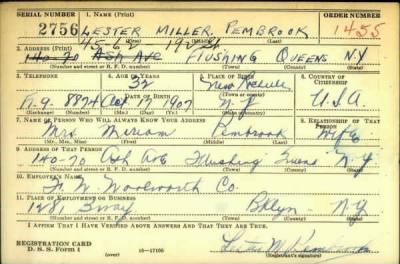 SERIAL NUMBER 1. NAME (Print) ORDER NUMBER
2756 LESTER MILLER PEMBROOK 1455
(First) (Middle) (Last)
45-62
2. ADDRESS (Print)
140-70 Ash Ave Flushing Queens NY
(Number and street or R. F. D. number) (Town) (County) (State)
3. TELEPHONE 4. AGE IN YEARS 5. PLACE OF BIRTH 6. COUNTRY OF CITIZENSHIP
32 New Rochelle
DATE OF BIRTH (Town or county)
Fl-9-8824 Oct 17 1907 N.Y. U.S.A
(Exchange) (Number) (Mo.) (Day) (Yr.) (State or country)
7. NAME OF PERSON WHO WILL ALWAYS KNOW YOUR ADDRESS 8. RELATIONSHIP OF THAT PERSON
Mrs. Miriam Pembrook Wife
(Mr., Mrs., Miss) (First) (Middle) (Last)
9. ADDRESS OF THAT PERSON
140-70 Ash Ave Flushing Queens N.Y.
(Number and street or R. F. D. number) (Town) (County) (State)
10. EMPLOYER'S NAME
F. W. Woolworth Co.
11. PLACE OF EMPLOYMENT OR BUSINESS
1281 Bway Bklyn NY
(Number and street or R. F. D. number) (Town) (County) (State)
I AFFIRM THAT I HAVE VERIFIED ABOVE ANSWERS AND THAT THEY ARE TRUE.
REGISTRATION CARD
D. S. S. Form 1 16-17105 Lester M. Pembrook
(Registrant's signature)